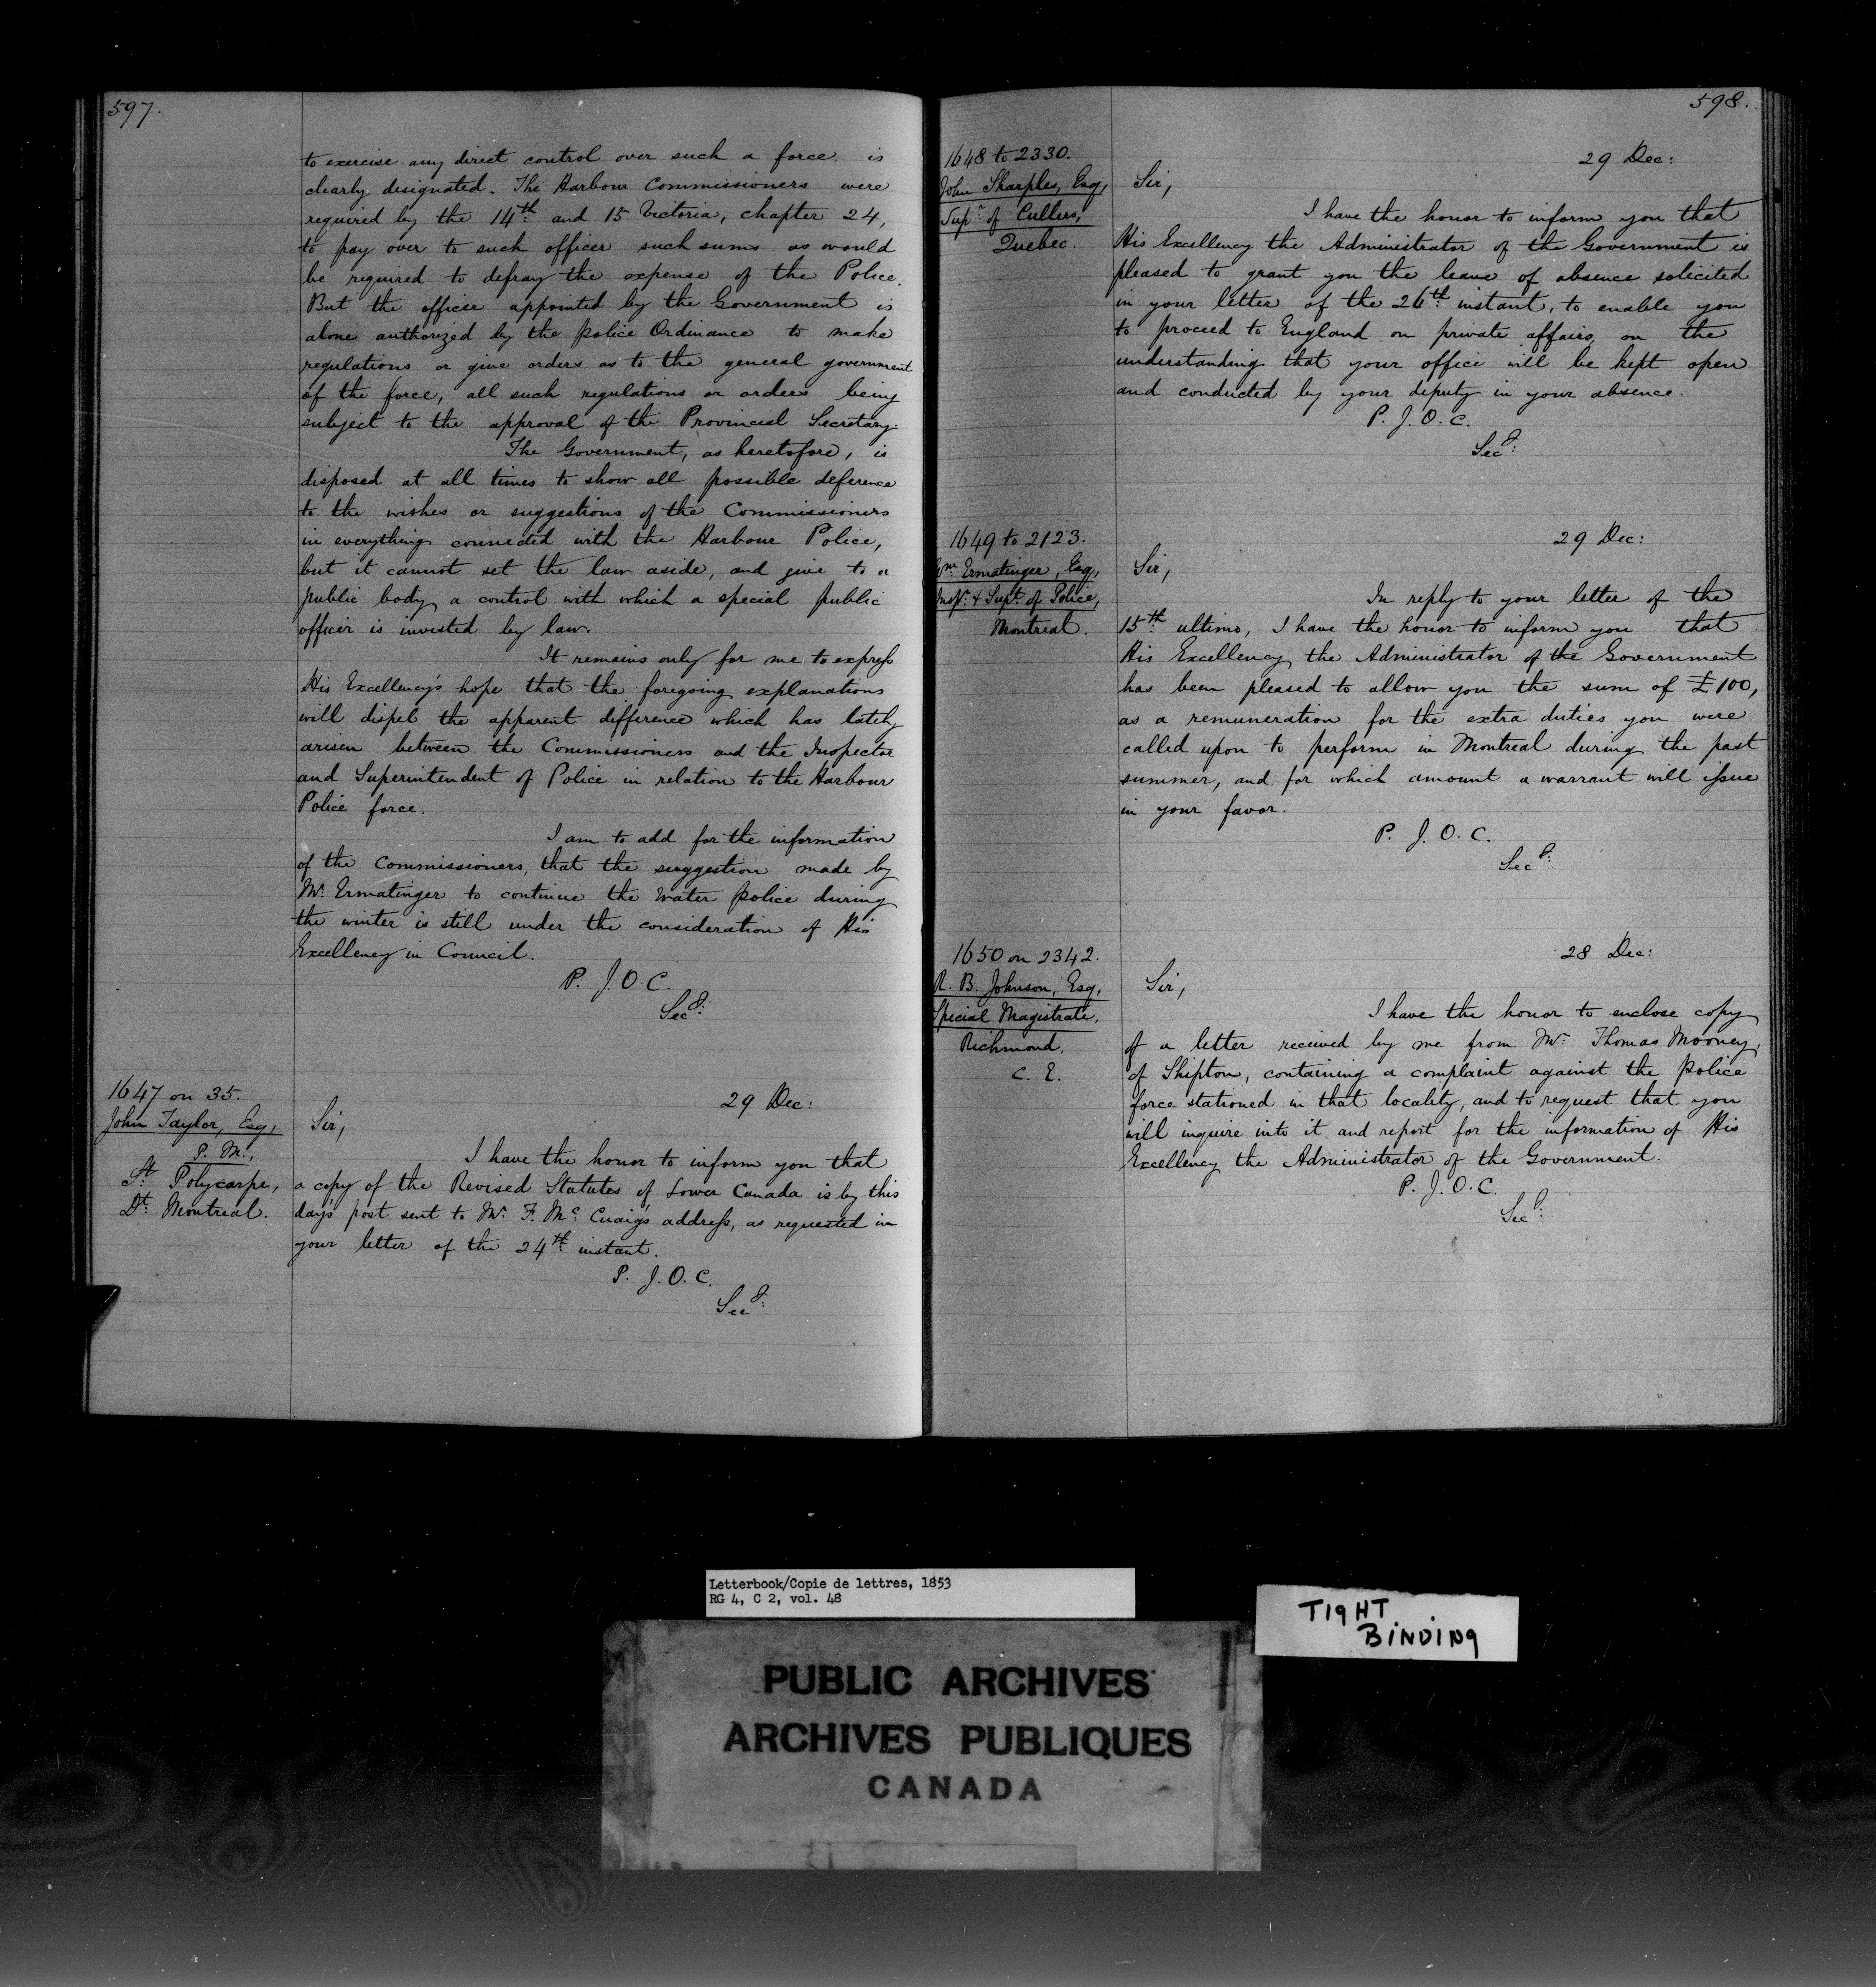 597.
to exercise any direct control over such a force, is
clearly designated. The Harbour Commissioners were
required by the 14th and 15 Victoria, chapter 24,
to pay over to such officer such sums as would
be required to defray the expense of the Police.
But the officer appointed by the Government is
alone authorized by the police Ordinance to make
regulations or give orders as to the general government
of the force, all such regulations or orders being
subject to the approval of the Provincial Secretary.
The Government, as heretofore, is
disposed at all times to show all possible deference
to the wishes or suggestions of the Commissioners
in everything connected with the Harbour Police,
but it cannot set the law aside, and give to a
public body a control with which a special public
officer is invested by law.
It remains only for me to express
His Excellency's hope that the foregoing explanations
will dispel the apparent difference which has lately
arisen between the Commissioners and the Inspector
and Superintendent of Police in relation to the Harbour
Police force.
I am to add for the information
of the Commissioners, that the suggestion made by
Mr. Ermatinger to continue the Water police during
the winter is still under the consideration of His
Excellency in Council.
P. J. O. C.
Secy:
1647 on 35.
John Taylor, Esq,
P. M.,
St. Polycarpe,
Dt. Montreal.
29 Dec:
Sir,
I have the honor to inform you that
a copy of the Revised Statutes of Lower Canada is by this
day's post sent to Mr. F. Mc. Cuaig's address, as requested in
your letter of the 24th instant.
P. J. O. C.
Secy:
598.
1648 to 2330.
John Sharples, Esq,
Supr. of Cullers,
Quebec.
29 Dec:
Sir,
I have the honor to inform you that
His Excellency the Administrator of the Government is
pleased to grant you the leave of absence solicited
in your letter of the 26th instant, to enable you
to proceed to England on private affairs, on the
understanding that your office will be kept open
and conducted by your deputy in your absence.
P. J. O. C.
Secy:
1649 to 2123.
Wm. Ermatinger, Esq,
Inspr. & Supt. of Police,
Montreal.
29 Dec:
Sir,
In reply to your letter of the
15th ultimo, I have the honor to inform you that
His Excellency the Administrator of the Government
has been pleased to allow you the sum of £100,
as a remuneration for the extra duties you were
called upon to perform in Montreal during the past
summer, and for which amount a warrant will issue
in your favor.
P. J. O. C.
Secy:
1650 on 2342.
R. B. Johnson, Esq,
Special Magistrate,
Richmond,
C. E.
28 Dec:
Sir,
I have the honor to enclose copy
of a letter received by me from Mr. Thomas Mooney,
of Shipton, containing a complaint against the police
force stationed in that locality, and to request that you
will inquire into it and report for the information of His
Excellency the Administrator of the Government.
P. J. O. C.
Secy:
Letterbook/Copie de lettres, 1853
RG 4, C 2, vol. 48
TIGHT
BINDING
PUBLIC ARCHIVES
ARCHIVES PUBLIQUES
CANADA